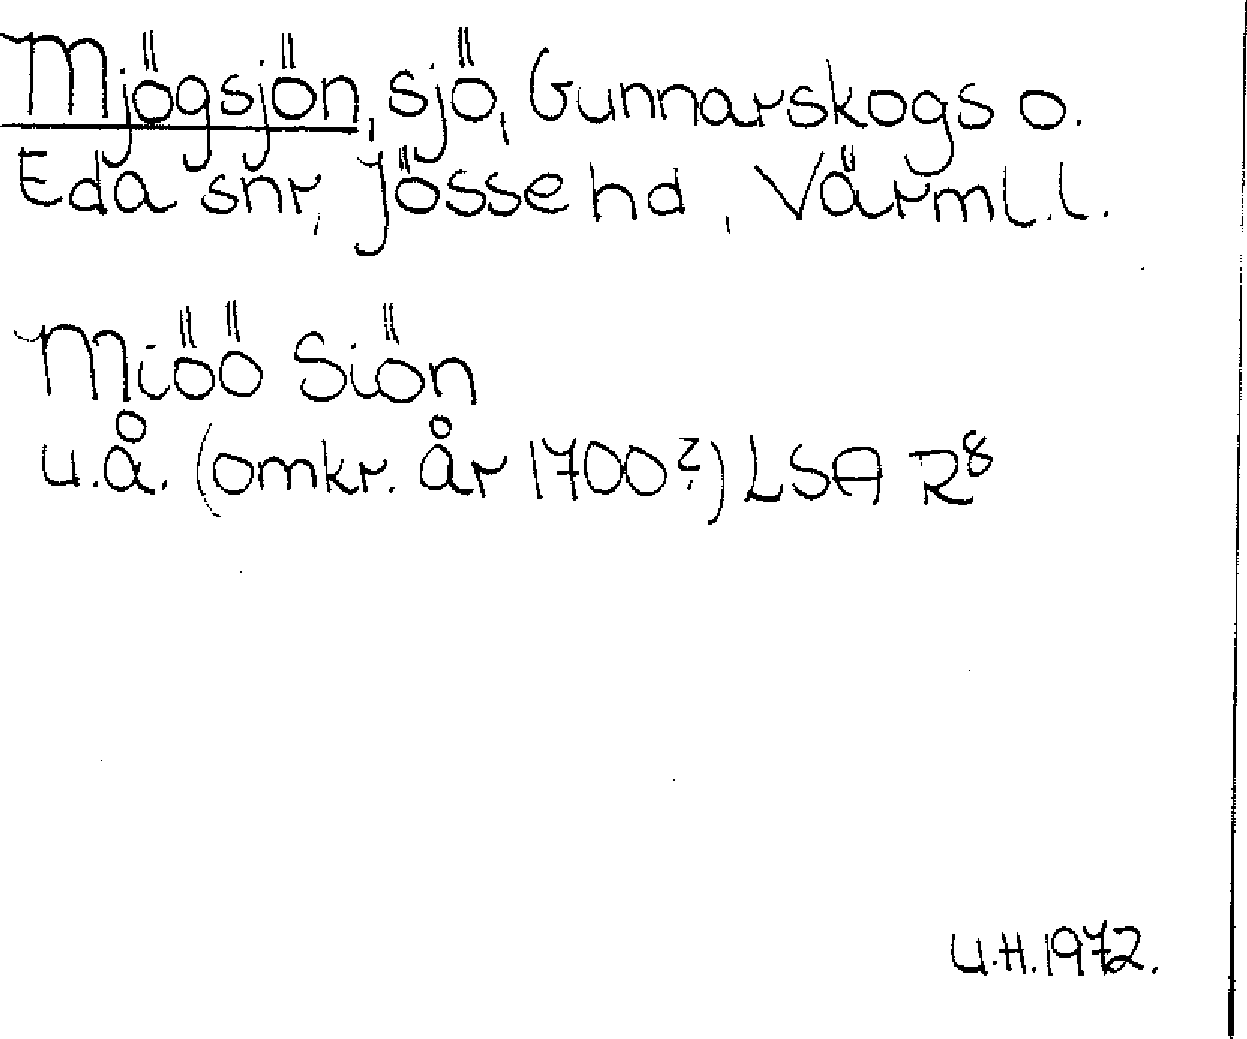 Mjögsjön, sjö, Gunnarskogs o.
Eda snr, Jösse hd, Värml.l.
Miöö Siön
u.å. (omkr. år 1700?) LSA R8
U.H. 1972.